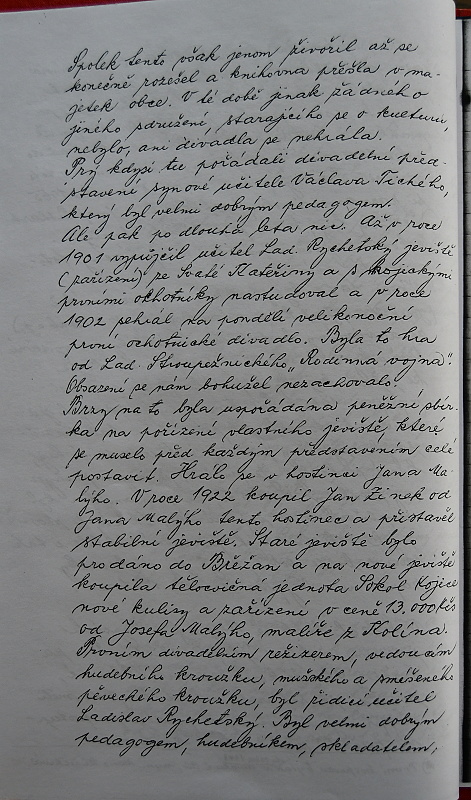 Spolek tento však jenom živořil až se
konečně rozešel a knihovna přešla v ma-
jetek obce. V té době jinak žádného
jiného sdružení, starajícího se o kulturu,
nebylo, ani divadla se nehrála.
Prý kdysi tu pořádali divadelní před-
stavení synové učitele Václava Tichého,
který byl velmi dobrým pedagogem.
Ale pak po dlouhá leta nic. Až v roce
1901 vypůjčil učitel Lad. Rychetský jeviště
(zařízení) ze Svaté Kateřiny a s kojickými
prvními ochotníky nastudoval a v roce
1902 sehrál na pondělí velikonoční
první ochotnické divadlo. Byla to hra
od Lad. Stroupežnického „Rodinná vojna".
Obsazení se nám bohužel nezachovalo.
Brzy na to byla uspořádána peněžní sbír-
ka na pořízení vlastního jeviště, které
se muselo před každým představením celé
postavit. Hrálo se v hostinci Jana Ma-
lýho. V roce 1922 koupil Jan Zinek od
Jana Malýho tento hostinec a přistavěl
stabilní jeviště. Staré jeviště bylo
prodáno do Břežan a na nové jeviště
koupila tělocvičná jednota Sokol Kojice
nové kulisy a zařízení v ceně 13.000 Kčs
od Josefa Malýho, malíře z Kolína.
Prvním divadelním režizerem, vedoucím
hudebního kroužku, mužského a smíšeného
pěveckého kroužku, byl řídící učitel
Ladislav Rychetský. Byl velmi dobrým
pedagogem, hudebníkem, skladatelem,